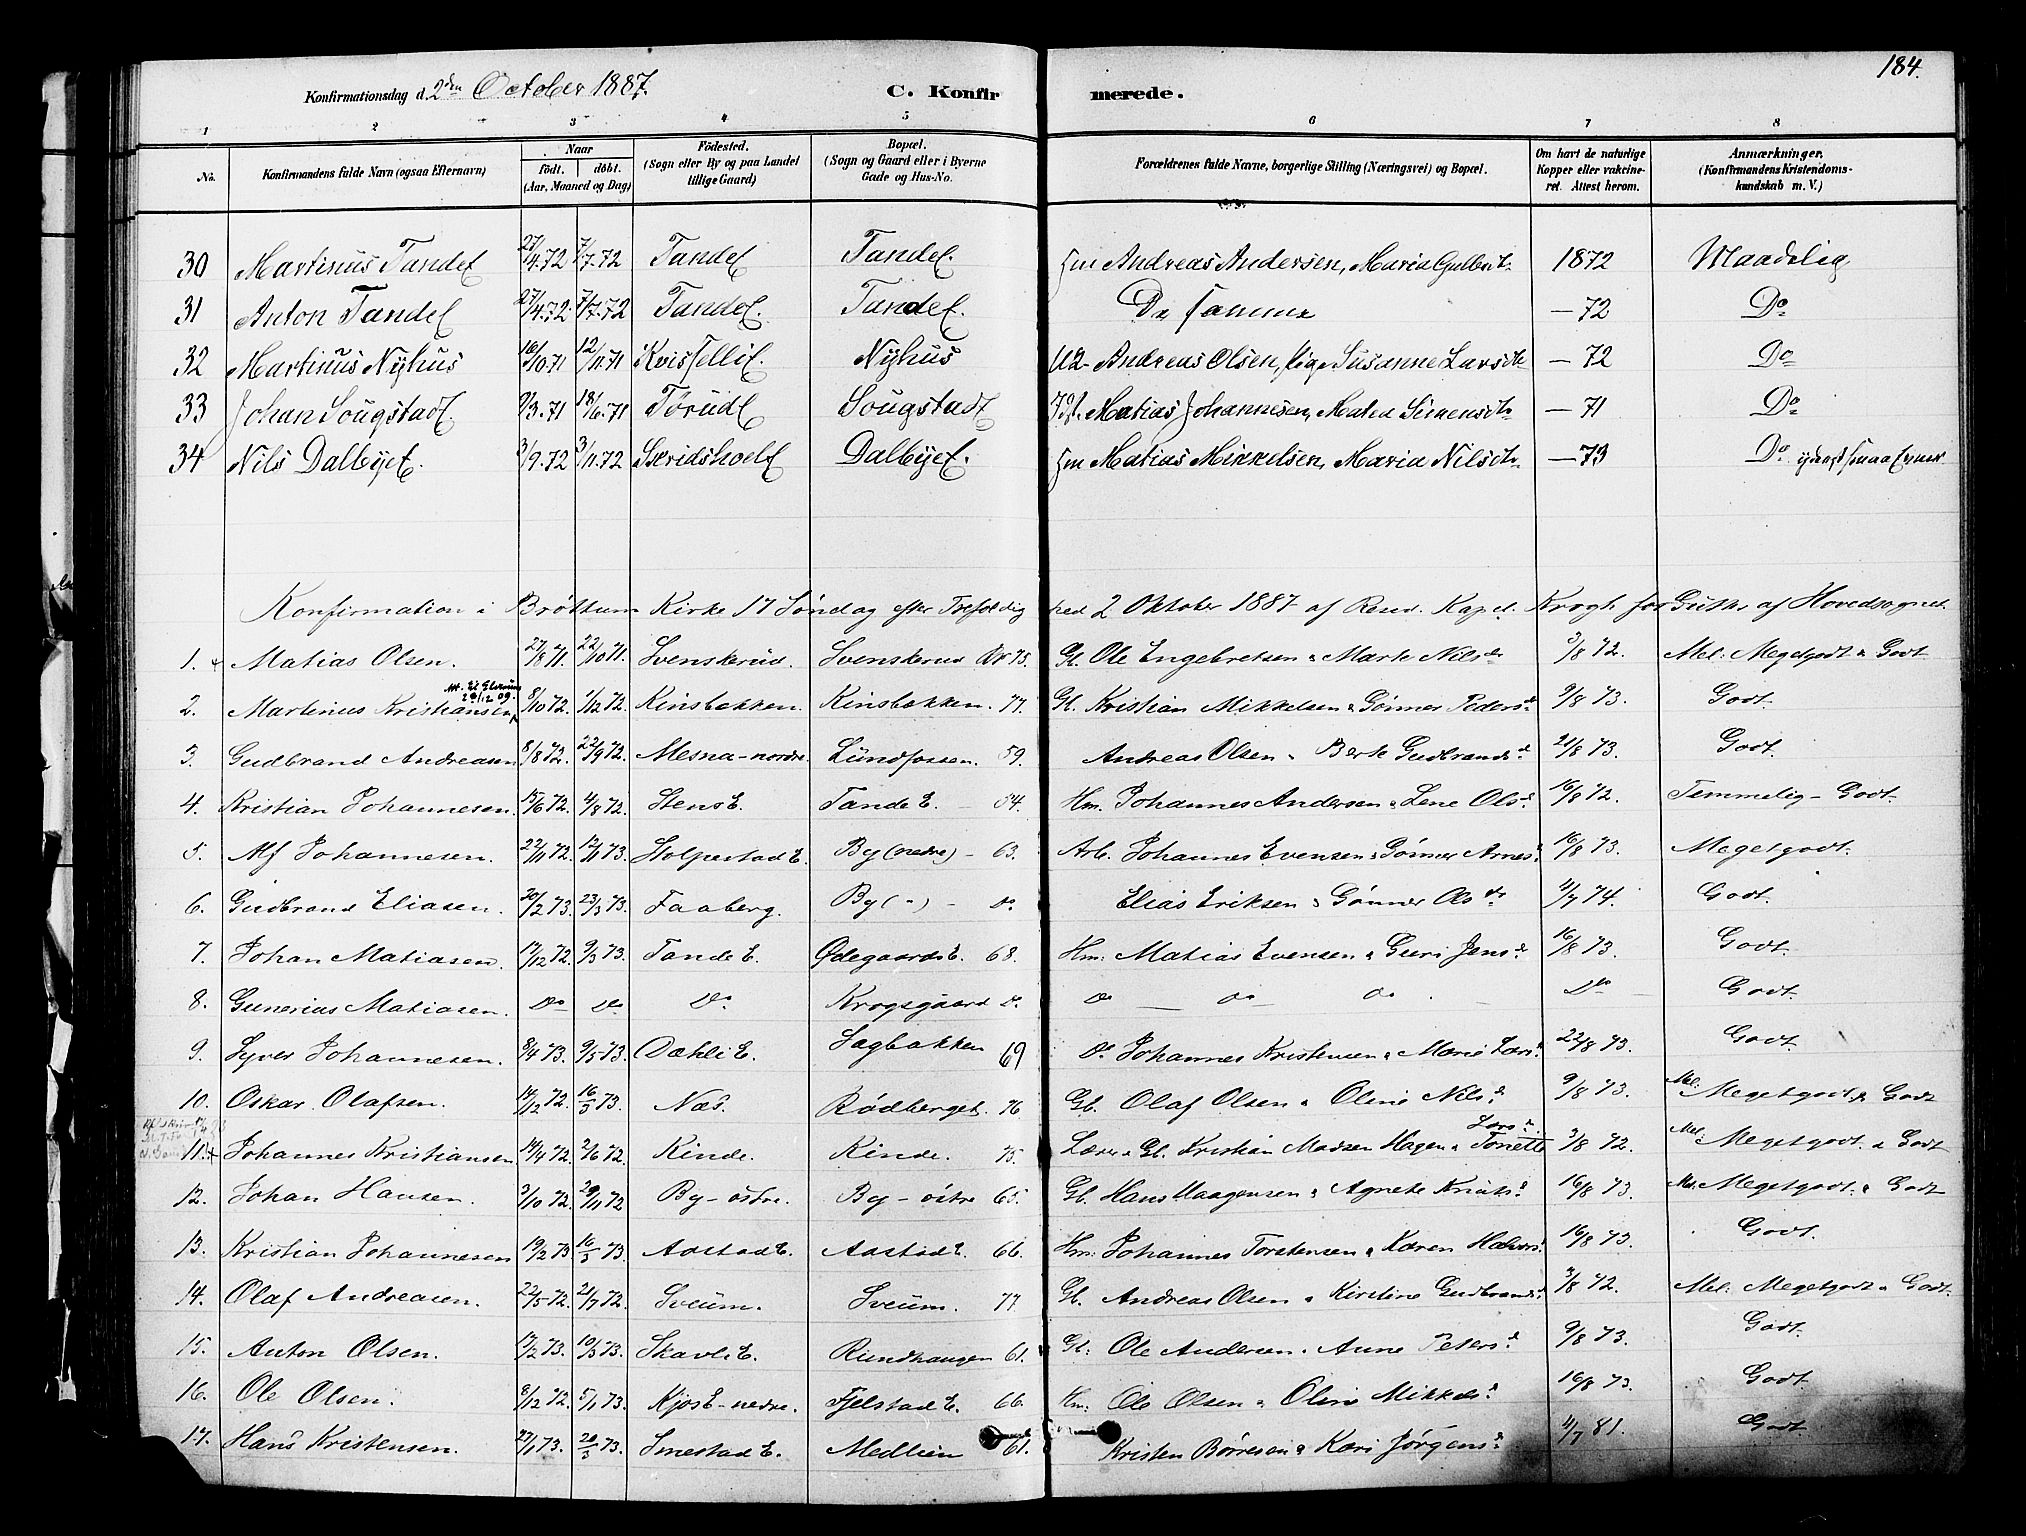 184.
Konfirmationsdag d. 2den October 1887.
C. Konfirmerede.
1 2 3 4 5 6 7 8
No. Konfirmandens fulde Navn (ogsaa Efternavn) Naar födt. döbt. (Aar, Maaned og Dag) Födested. (Sogn eller By og paa Landet tillige Gaard) Bopæl. (Sogn og Gaard eller i Byerne Gade og Hus-No. Forældrenes fulde Navne, borgerlige Stilling (Næringsvei) og Bopæl. Om havt de naturlige Kopper eller vakcineret. Attest herom. Anmærkninger. (Konfirmandens Kristendomskundskab m. V.)
30 Martinus TandeE 27/4.72 7/7.72 TandeE TandeE. Hm Andreas Andersen, Maria Gulbrdt. 1872 Maadelig
31 Anton TandeE 27/4.72 7/7.72 TandeE. TandeE. De samme — 72 Do
32 Martinus Nyhus 16/10.71 12/11.71 Nyhus Andreas Olsen, Pige Susanne Larsdt. — 72 Do
33 Johan SougstadE. 9/3.71 18/6.71 TørudE SougstadE Matias Johannesen, — 71 Do
34 Nils DalbyeE. 3/9.72 3/11.72 DalbyeE. Hm Matias Mikkelsen, Maria Nilsdt. — 73 Do
Konfirmation i Brøttum Kirke 17 Søndag efter Trefoldighed 2 Oktober 1887 af Resid. Kapel. Krogh for Gutter af Hovedsognet.
1. + Matias Olsen. 27/8 71. 22/10 71. Svenskerud. Svenskerud No 75. Gb. Ole Engebretsen & Marte Nilsdr 3/8 72. Mel: Megetgodt & Godt
Att. til Elverum 20/12 09.
2. Martinus Kristiansen 8/10 72. 1/12 72. Kinsbakken. Kinsbakken. 77. Gb. Kristian Mikkelsen & Gönner Pedersd. 9/8 73. Godt.
3. Gudbrand Andreasen 8/8 72. 22/9 72. Mesna-nordre. Lundfossen. 59. Andreas Olsen & Berte Gudbrandsd. 21/8 73. Godt.
4. Kristian Johannesen. 15/6 72. 4/8 72. StensE. TandeE. - 54. Hm. Johannes Andersen & Lene Olsd. 16/8 72. Temmelig-Godt.
5. Alf Johannesen. 22/11 72. 12/1 73. StolpestadE. By (nedre) - 63. Arb. Johannes Evensen & Gönner Arnesd. 16/8 73. Megetgodt.
6. Gudbrand Eliasen. 20/2 73. 23/3 73. Faaberg. By ( " ) - do Elias Eriksen & Gönner Olsdr 4/7 74. Godt.
7. Johan Matiasen. 17/12 72. 9/3 73. TandeE. ØdegaardsE. 68. Hm: Matias Evensen & Guri Jensd. 16/8 73. Godt.
8. Gunerius Matiasen. do do Do. Krogsgaard do. do — do — do. - Do Godt.
9. Syver Johannesen. 8/4 73. 9/5 73. DæhliE. Sagbakken 69 do Johannes Kristensen & Marie Larsd. 22/8 73. Godt.
10. Oskar Olafsen. 14/12 72. 16/3 73. Næs. Rödberget. 76 Gb. Olaf Olsen & Oline Nilsd. 9/8 73. Mel: Megetgodt & Godt
11. + Johannes Kristiansen 14/4 72. 2/6 72. Kinde. Kinde. 75. Lærer & Gb. Kristian Madsen Hagen & Tonette Larsd. 3/8 72. Mel: Megetgodt & Godt
12. Johan Hansen. 3/10 72. 29/11 72 By-östre. By-östre 65. Gb. Hans Haagensen & Agnete Knutsd. 16/8 73. Mel. Megetgodt. & Godt
13. Kristian Johannesen 19/2 73 16/3 73. AastadE. AastadE. 66. Hm: Johannes Torstensen & Karen Halvorsd. 16/8 73. Godt.
14. Olaf Andreasen. 22/5 72. 21/7 72. Sveum. Sveum. 77 Gb. Andreas Olsen & Kirstine Gudbrandsd. 3/8 72. Mel: Megetgodt & Godt.
15. Anton Olsen. 17/2 73. 10/3 73. SkavliE. Rundhaugen 61. Gb: Ole Andersen & Anne Petersd. 9/8 73. Godt.
16. Ole Olsen. 8/12 72. 5/1 73. KjosE-nedre. FjelstadE. 66. Hm: Ole Olsen & Oline Mikkelsd. 16/8 73. Godt.
17. Hans Kristensen. 27/1 73. 20/3 73. SmestadE. Medlien 61. Kristen Börresen & Kari Jörgensd. 4/7 81. Godt